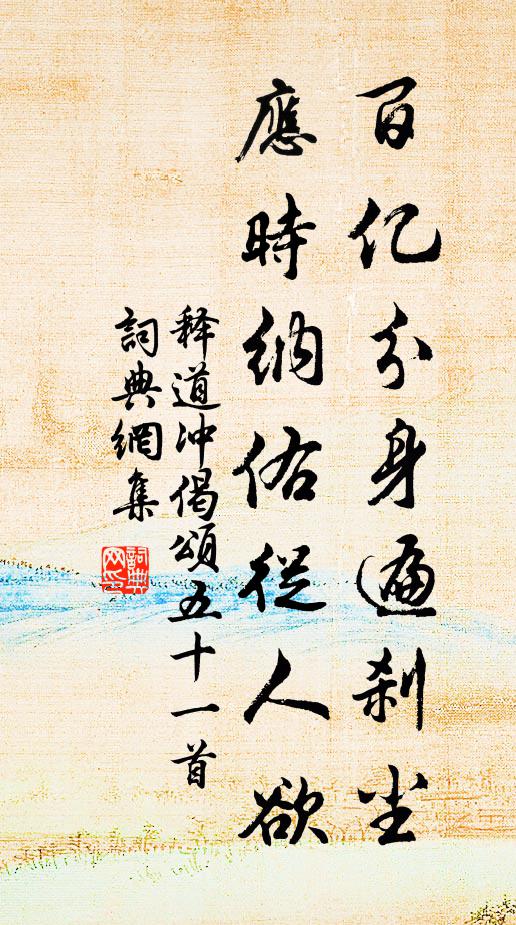 百亿分身遍刹尘
應時纳佑從人欲
释道冲偈頌五十一首
詞典網集
詞典
网